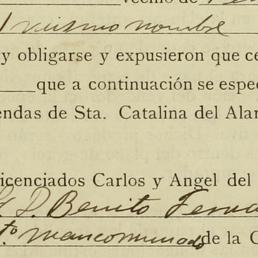 vecino de
mismo nombre
y obligarse y expusieron que ce
que a continuación se espec
endas de Sta. Catalina del Alar
icenciados Carlos y Angel del
D. Benito
mancomunado de la C